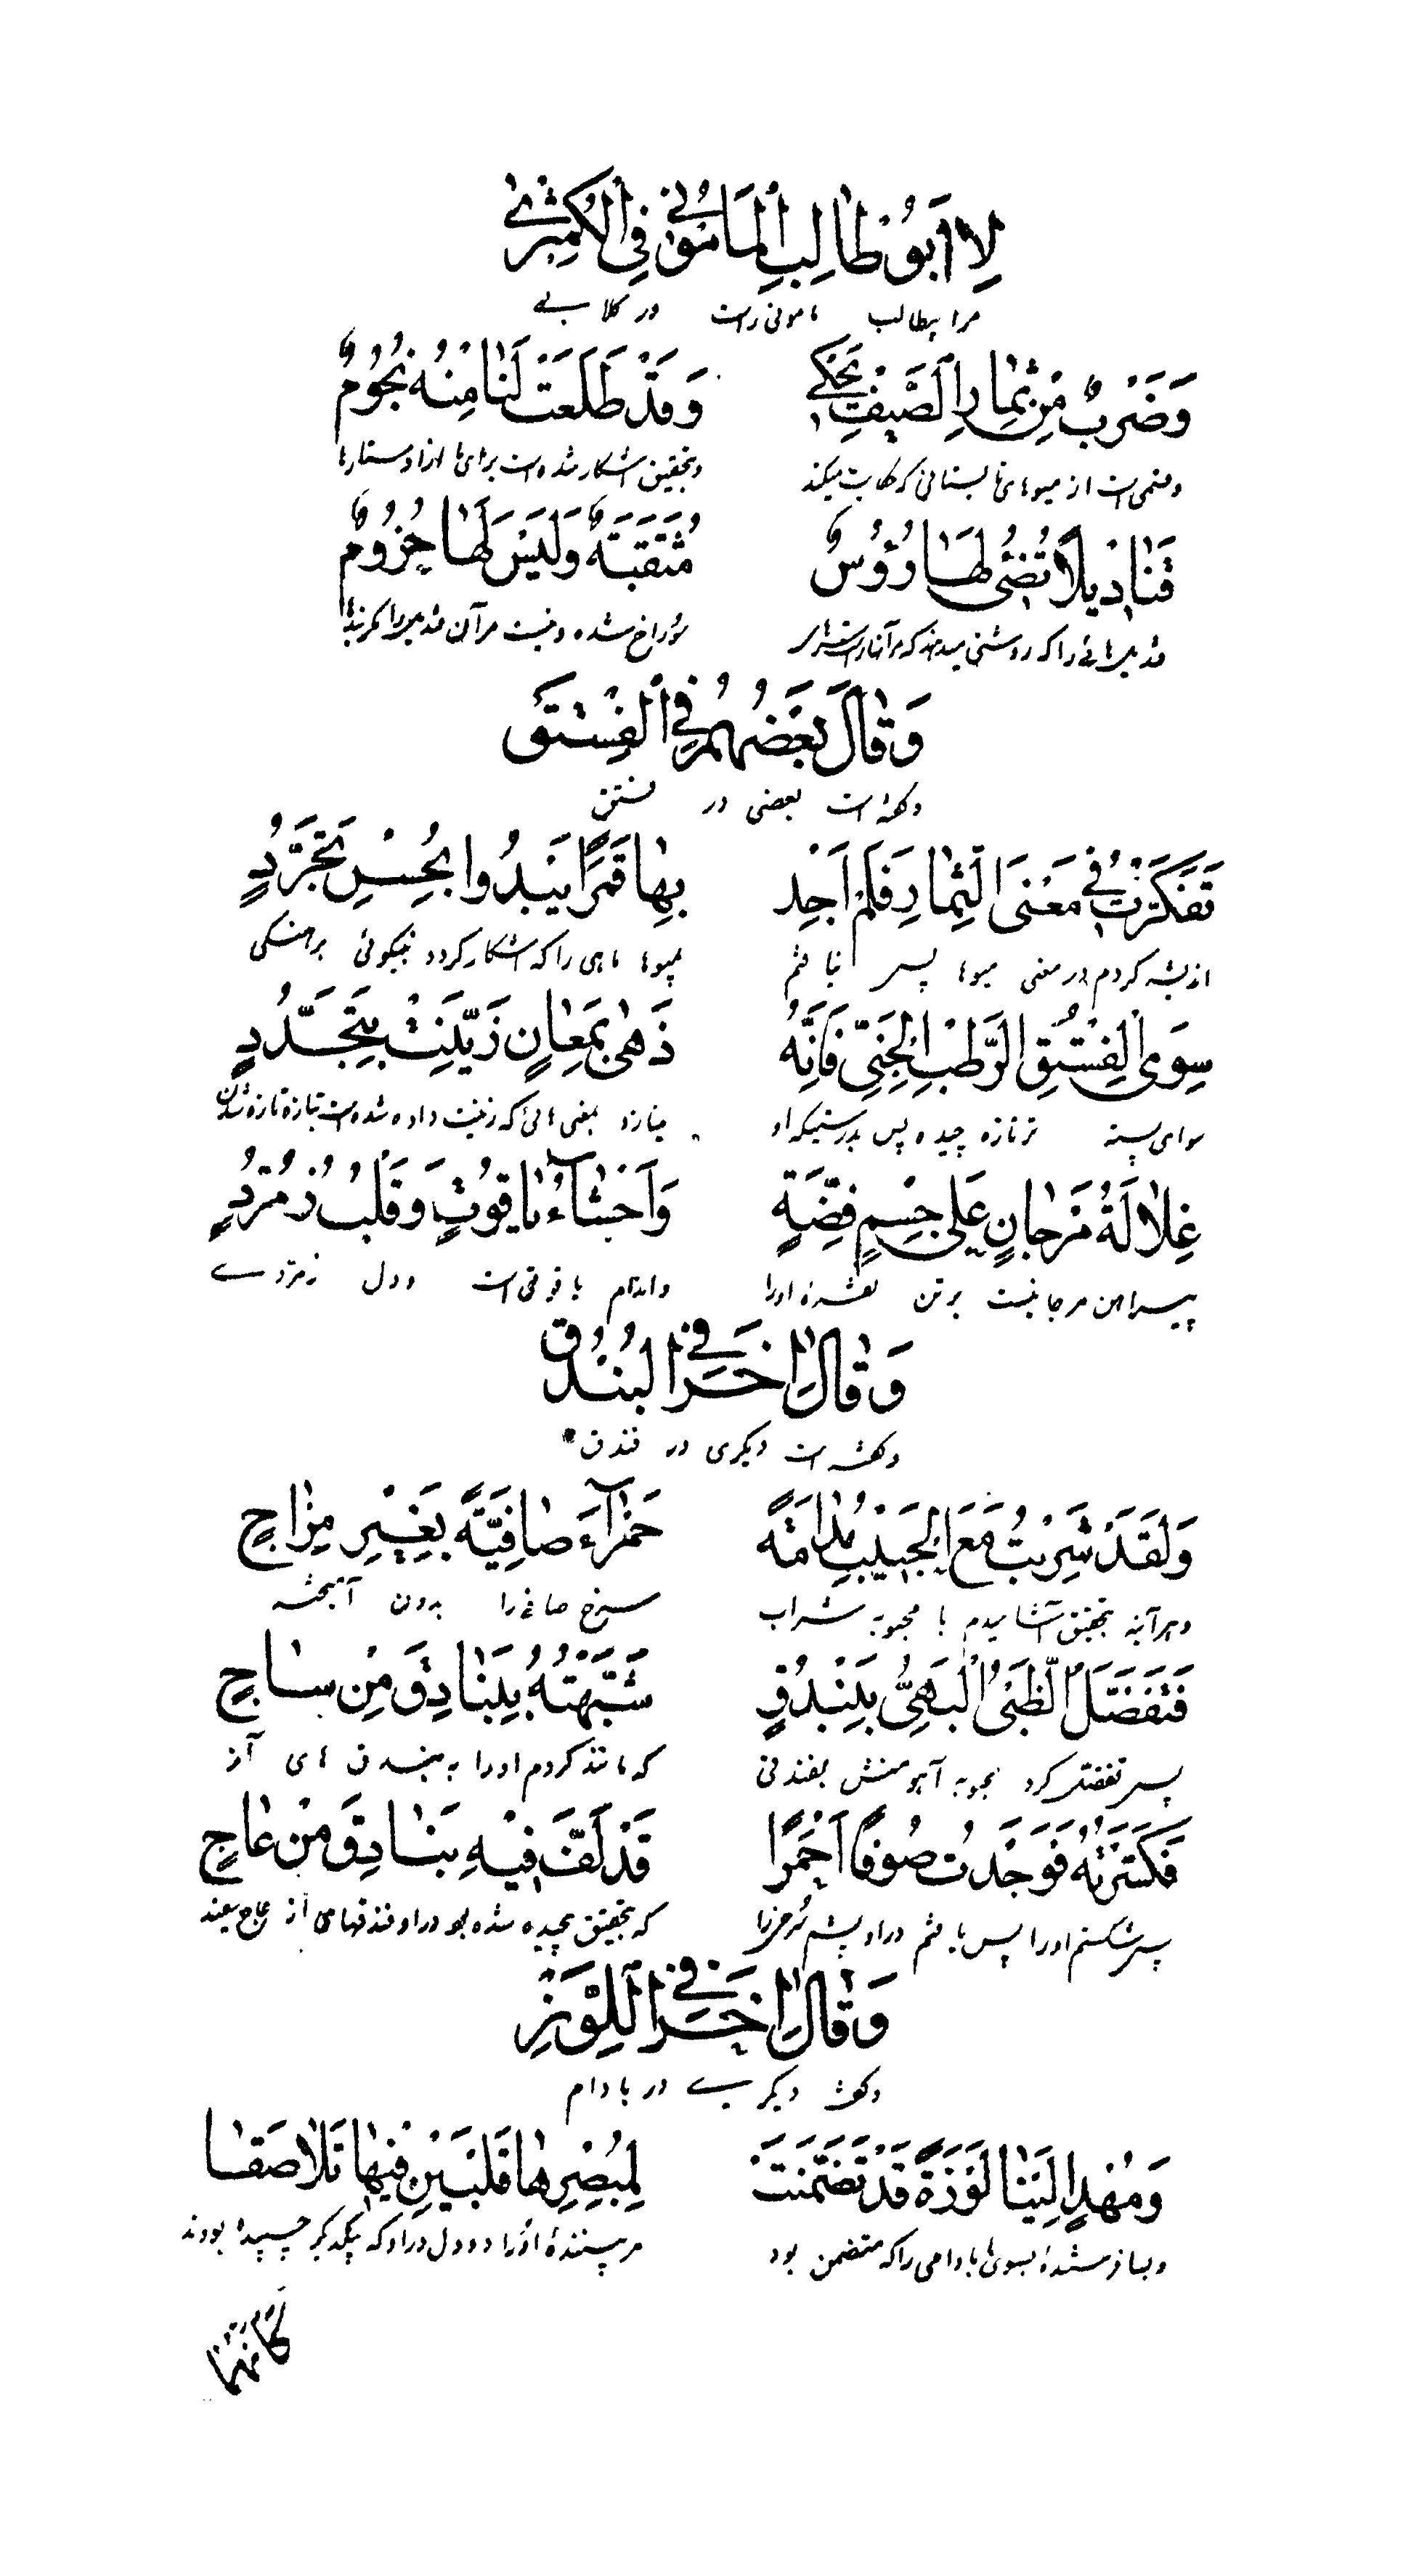 لِاابَوُطالِبِ المَامُونیّ فِی الْکُمِثْریٰ
مرا بیطالب مامونی راست در کلابی
وَضَرْبٌ مِنْ ثِمٰارِ الصَّیْفِ یَحْکی وَقَدْ طَلَعَتْ لَنٰا مِنْهُ نُجُومٌ
وقسمی است از میوهای تابستانی که حکایت میکند وبتحقیق اشکار شده است برای ما از او ستارها
قَنٰادیٖلاً تُضیٖئُ لَهٰا رُؤُسٌ مُثَقَّبَةٌ وَلَیْسَ لَهٰا خُزُومٌ
قندیلهائی را که روشنی میدهد که مر آنهاراست سرها سوراخ شده ونیست مر آن قندیلهارا کمربندها
وَقٰالَ بَعْضُهُمْ فِی الْفِسْتَقِ
وگفته است بعضی در فستق
تَفَکَّرْتُ فیٖ مَعْنَی الَثِمٰارِ فَلَمْ اَجِدْ بِهٰا ثَمَرًا یَبْدُوا بِحُسْنِ تَجَرُّدٍ
اندیشه کردم در معنی میوها پس نیافتم بمیوها ماهی را که اشکار کردد بنیکوئی برهنکی
سِوَی الْفِسْتُقِ الرَّطْبِ الْجَنِیِّ فَاِنَّهُ زَهٰی بِمَعٰانٍ زُیِّنَتْ بِتَجَدُّدٍ
سوای پسته تر تازه چیده پس بدرستیکه او مینازد بمعنی هائی که زینت داده شده است بتازه تازه شدن
غِلٰالَةُ مَرْجٰانٍ عَلیٰ جِسْمِ فِضَّةٍ وَاَحْشٰآءُ یٰاقُوتٍ وَقَلْبُ زُمُرُّدٍ
پیراهن مرجانیست بر تن نقره اورا واندام یاقوتی است ودل زمردی
وَقٰالَ اٰخَرُ فیِ الْبُنْدُقِ
وگفته است دیکری در فندق
وَلَقَدْ شَرِبْتُ مَعَ الْحَبیٖبِ مُدٰامَةً حَمْرٰآءَ صٰافِیَّةً بِغَیْرِ مِزٰاجٍ
وهرآینه بتحقیق آشامیدم با محبوبه شراب سرخ صافی را بدون آمیخته
فَتَفَضَّلَ الظَّبْیُ الْبَهِیُّ بِبُنْدُقٍ شَبَّهْتُهُ بِبَنٰادِقَ مِنْ سٰاجٍ
پس تفضل کرد محبوبه آهو منش بفندقی که مانند کردم اورا به بندق های از
فَکَسَرْتُهُ فَوَجَدْتُ صُوفاً اَحْمَرًا قَدْ لَفَّ فیٖهِ بَنٰادِقَ مِنْ عٰاجٍ
پس شکستم اورا پس یافتم در او پشم سرخرا که بتحقیق پیچیده شده بود در او فندقهای از عاج سفید
وَقٰالَ اٰخَرُ فیِ اللَّوْزِ
وگفته دیکری در بادام
وَمُهْدٍ اِلَیْنٰا لَوْزَةً قَدْ تَضَمَّنَتْ لِمُبْصِرِهٰا قَلْبَیْنِ فیٖهٰا تَلٰاصَقٰا
وبسا فرستندهٔ بسوی ما بادامی را که متضمن بود مر بینندهٔ اورا دو دل در او که بیکدیکر چسپیده بودند
کَاَنَّهُمٰا